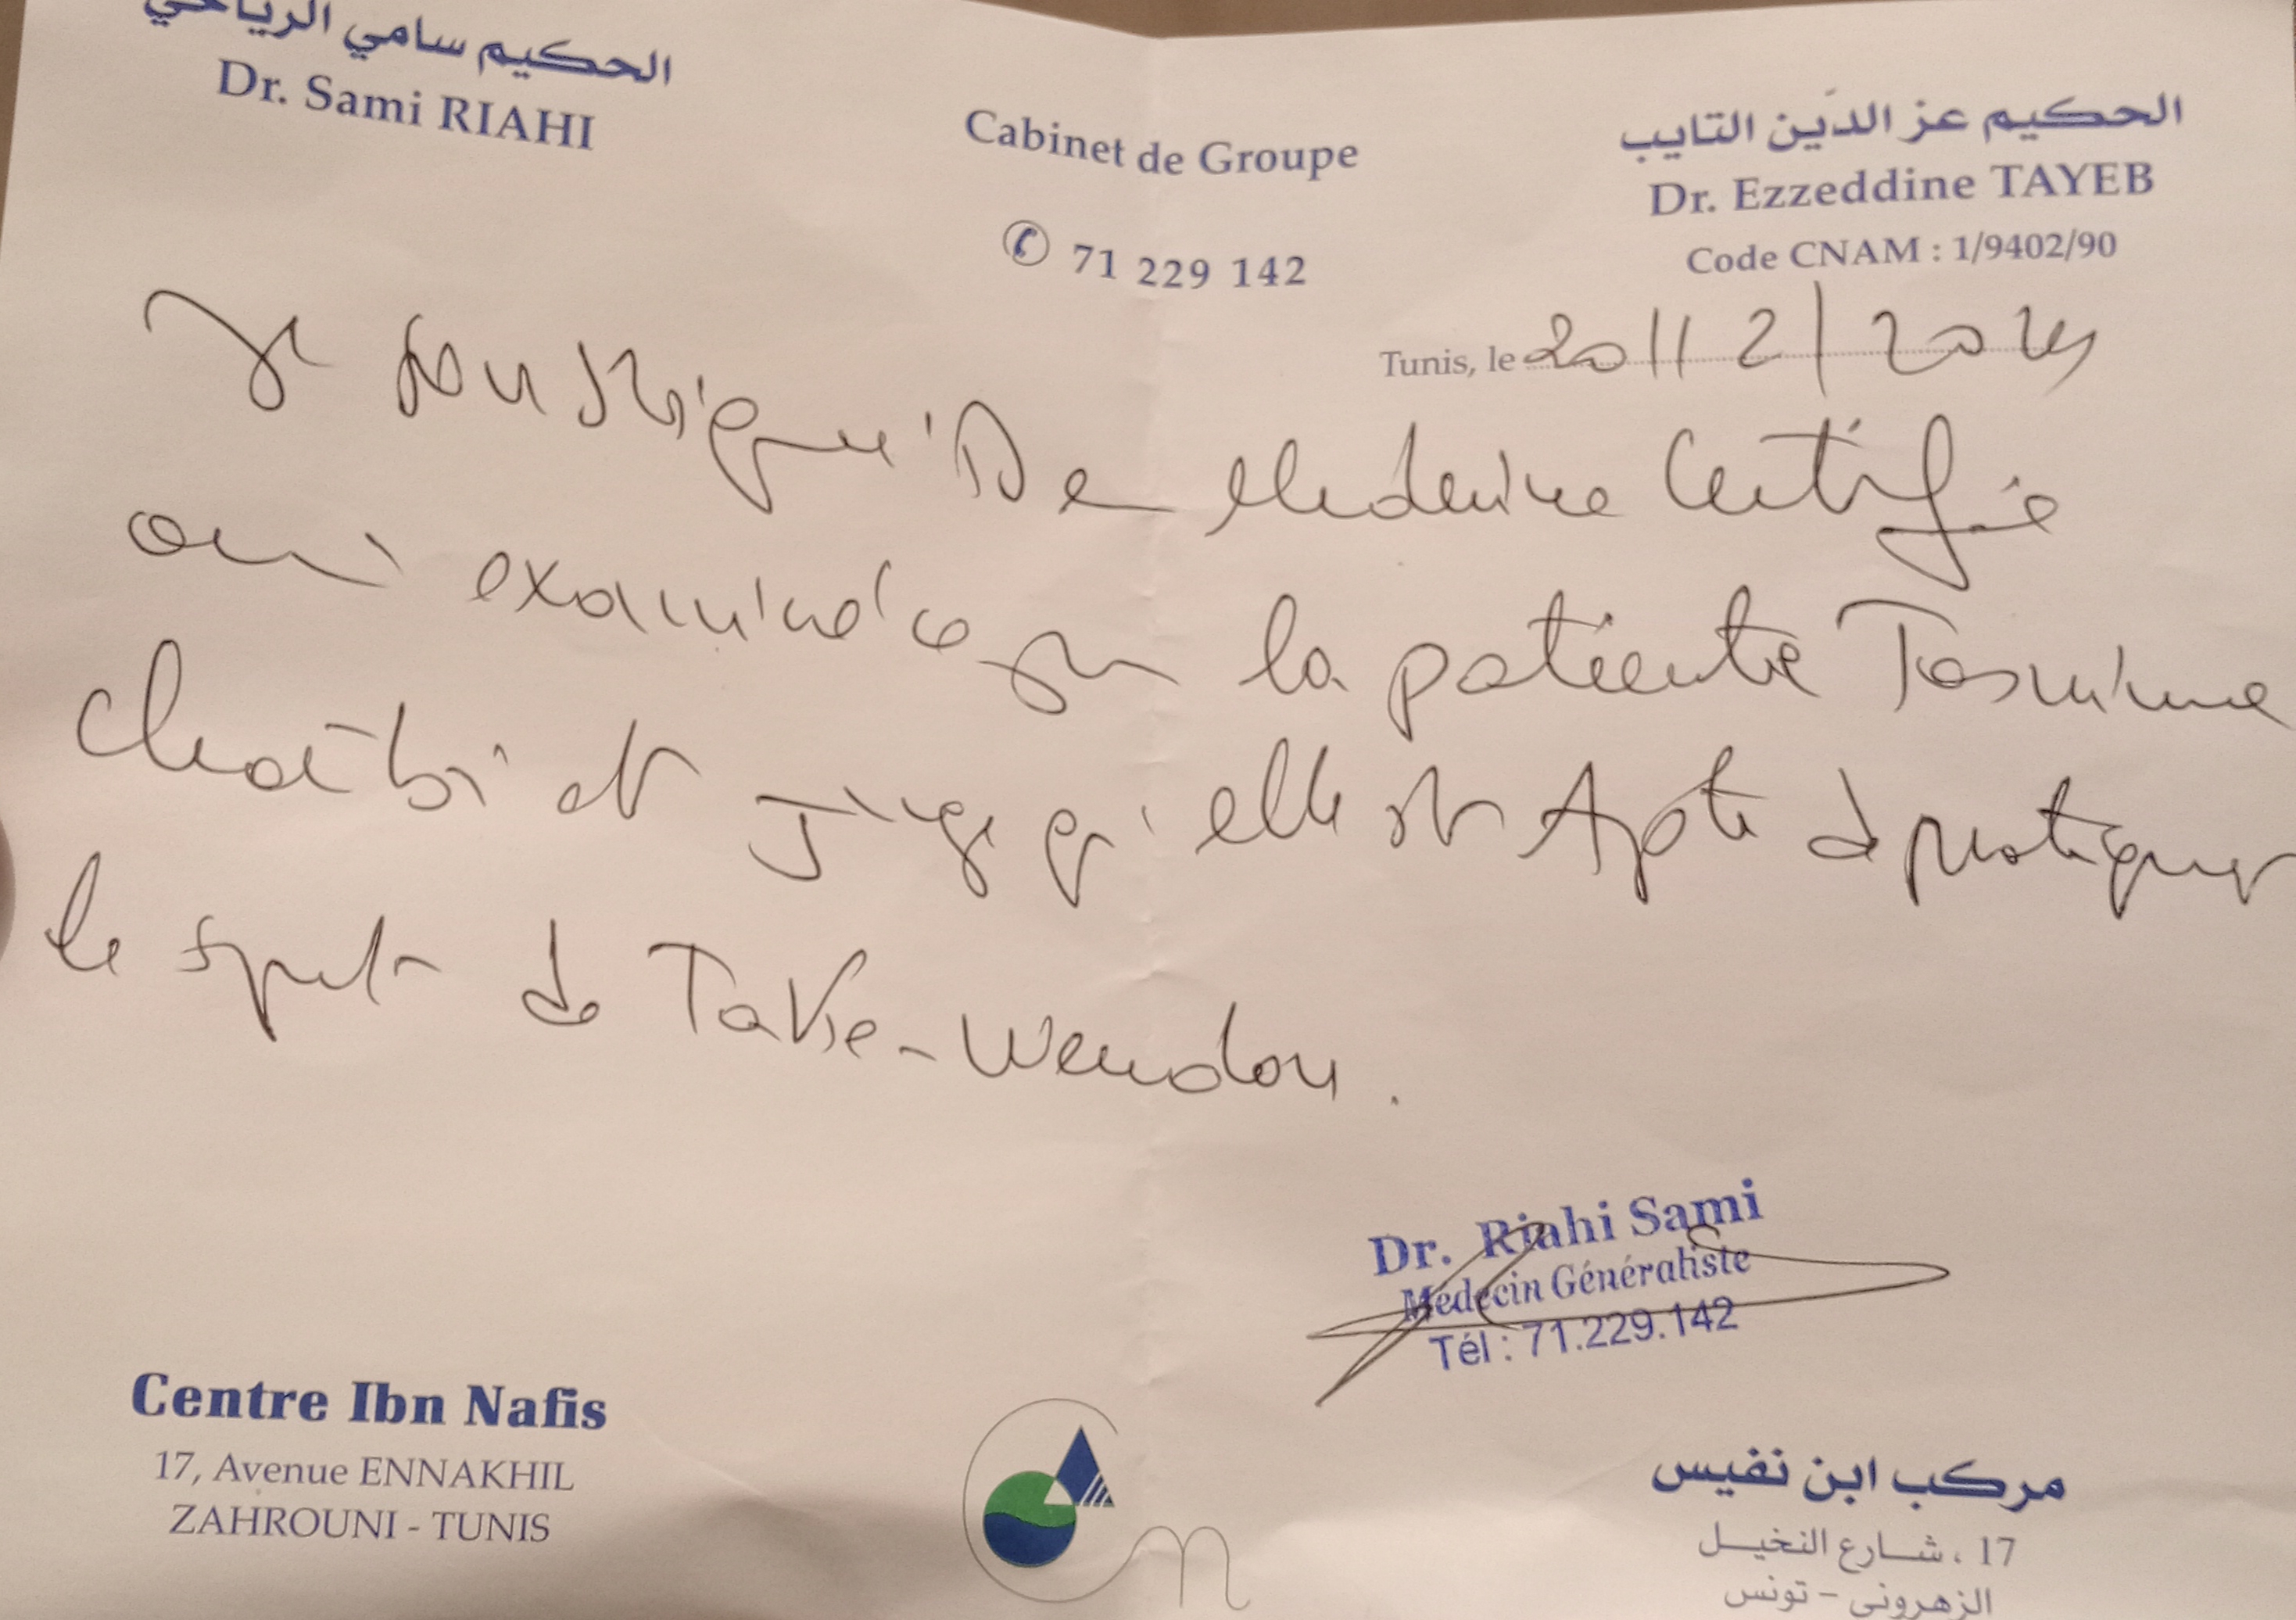 الحكيم سامي الرياحي
Dr. Sami RIAHI
Cabinet de Groupe
71 229 142
الحكيم عز الدّين التايب
Dr. Ezzeddine TAYEB
Code CNAM : 1/9402/90
Tunis, le 20/12/2024
Je soussigné Dr en Medecine Certifie
avoir examiné ce jour la patiente Tasnime
Chaibi et juge qu'elle est Apte à pratiquer
le sport de Takie-Wendou.
Dr. Riahi Sami
Médecin Généraliste
Tél : 71.229.142
Centre Ibn Nafis
17, Avenue ENNAKHIL
ZAHROUNI - TUNIS
مركب ابن نفيس
17 ، شارع النخيل
الزهروني - تونس